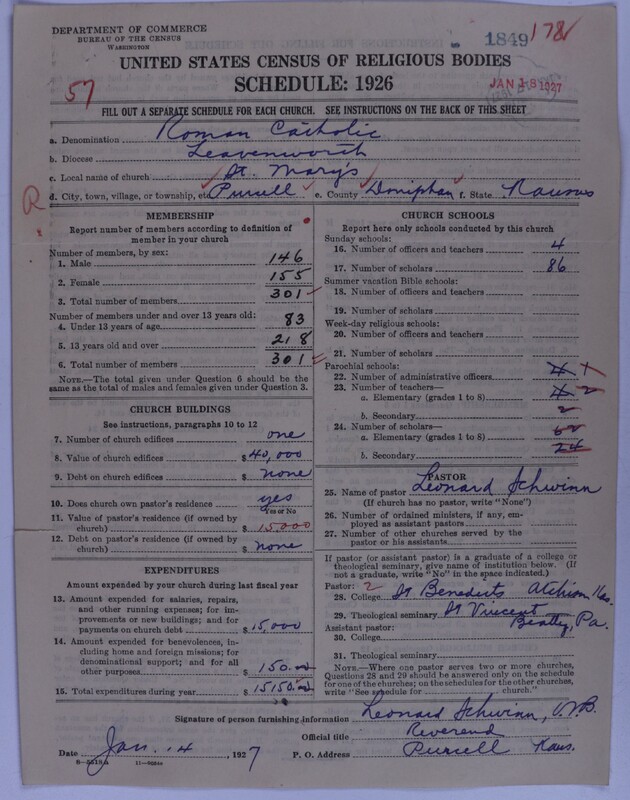 DEPARTMENT OF COMMERCE
BUREAU OF THE CENSUS
WASHINGTON
1849 178
UNITED STATES CENSUS OF RELIGIOUS BODIES
SCHEDULE: 1926
57
JAN 18 1927
FILL OUT A SEPARATE SCHEDULE FOR EACH CHURCH. SEE INSTRUCTIONS ON THE BACK OF THIS SHEET
a. Denomination Roman Catholic
b. Diocese Leavenworth
c. Local name of church St. Mary's
d. City, town, village, or township, etc. Purcell e. County Doniphan f. State Kansas
R
MEMBERSHIP
Report number of members according to definition of
member in your church
Number of members, by sex:
1. Male 146
2. Female 155
3. Total number of members 301
Number of members under and over 13 years old:
4. Under 13 years of age 83
5. 13 years old and over 218
6. Total number of members 301
NOTE.—The total given under Question 6 should be
same as the total of males and females given under Question 3.
CHURCH BUILDINGS
See instructions, paragraphs 10 to 12
7. Number of church edifices one
8. Value of church edifices $40,000
9. Debt on church edifices $ none
10. Does church own pastor's residence yes
Yes or No
11. Value of pastor's residence (if owned by
church) $ 15,000
12. Debt on pastor's residence (if owned by
church) $ none
EXPENDITURES
Amount expended by your church during last fiscal year
13. Amount expended for salaries, repairs,
and other running expenses; for im-
provements or new buildings; and for
payments on church debt $15,000
14. Amount expended for benevolences, in-
cluding home and foreign missions; for
denominational support; and for all
other purposes $ 150.00
15. Total expenditures during year $15150.00
CHURCH SCHOOLS
Report here only schools conducted by this church
Sunday schools:
16. Number of officers and teachers 4
17. Number of scholars 86
Summer vacation Bible schools:
18. Number of officers and teachers
19. Number of scholars
Week-day religious schools:
20. Number of officers and teachers
21. Number of scholars
Parochial schools:
22. Number of administrative officers 4 1
23. Number of teachers—
a. Elementary (grades 1 to 8) 4 2
b. Secondary 2
24. Number of scholars—
a. Elementary (grades 1 to 8) 62
b. Secondary 24
PASTOR
25. Name of pastor Leonard Schwinn
(If church has no pastor, write "None")
26. Number of ordained ministers, if any, em-
ployed as assistant pastors
27. Number of other churches served by the
pastor or his assistants
If pastor (or assistant pastor) is a graduate of a college or
theological seminary, give name of institution below. (If
not a graduate, write "No" in the space indicated.)
Pastor: 2
28. College St Benedicts Atchison Kas.
29. Theological seminary St Vincent
Beatty, Pa.
Assistant pastor:
30. College
31. Theological seminary
NOTE.—Where one pastor serves two or more churches,
Questions 28 and 29 should be answered only on the schedule
for one of the churches; on the schedules for the other churches,
write "See schedule for church."
Signature of person furnishing information Leonard Schwinn, O.S.B.
Official title Reverend
Date Jan. 14, 1927 P. O. Address Purcell Kans.
8-5513a 11-9224a